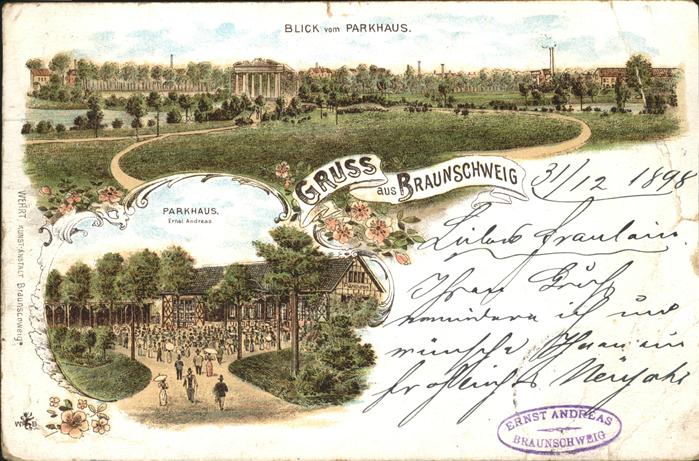 BLICK vom PARKHAUS.
GRUSS aus BRAUNSCHWEIG
31/12 1898
PARKHAUS.
Ernst Andreas.
Liebes Fräulein
Ihren Gruß
ich und
wünsche Ihnen ein
fröhliches Neujahr
WEHRT KUNSTANSTALT Braunschweig.
ERNST ANDREAS
BRAUNSCHWEIG